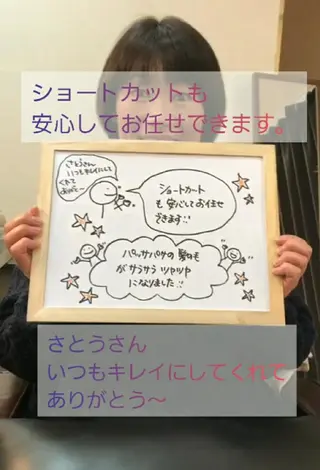 ショートカットも
安心してお任せできます。
さとうさん
いつもキレイにして
くれて
ありがと〜
ショートカート
も安心してお任せ
できます!!
パッサパサの髪の毛
がサラサラ ツヤツヤ
になりました!!
さとうさん
いつもキレイにしてくれて
ありがとう〜